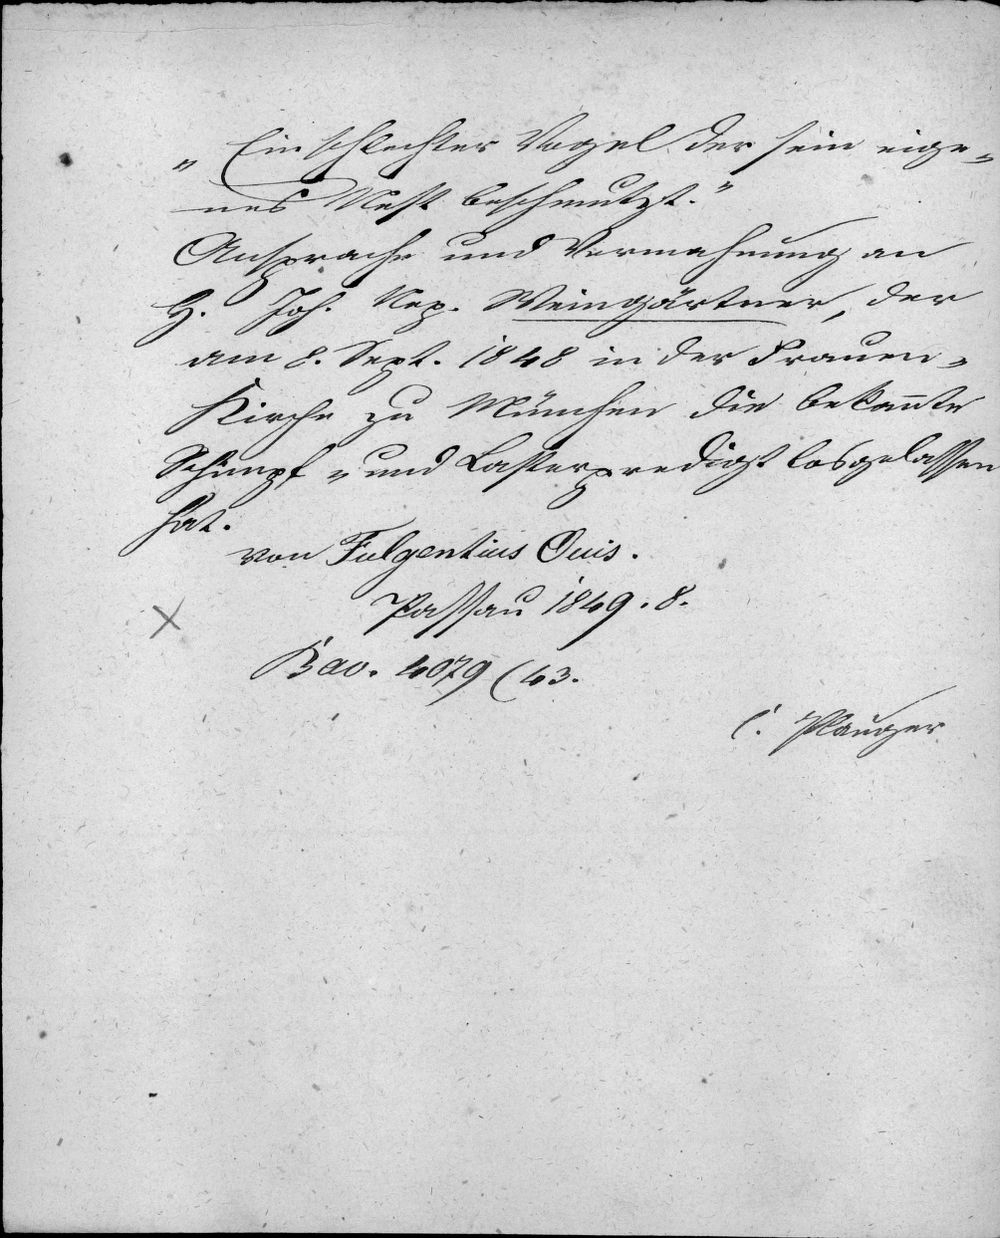 „Ein schlechter Vogel der sein eige-
nes Nest beschmutzt."
Ansprache und Vermahnung an
H. Joh. Nep. Weingärtner, der
am 8. Sept. 1848 in der Frauen-
Kirche zu München die bekannte
Schimpf- und Lasterpredigt losgelassen
hat.
von Fulgentius Ouis.
Passau 1849. 8.
Bav. 4079 (43.